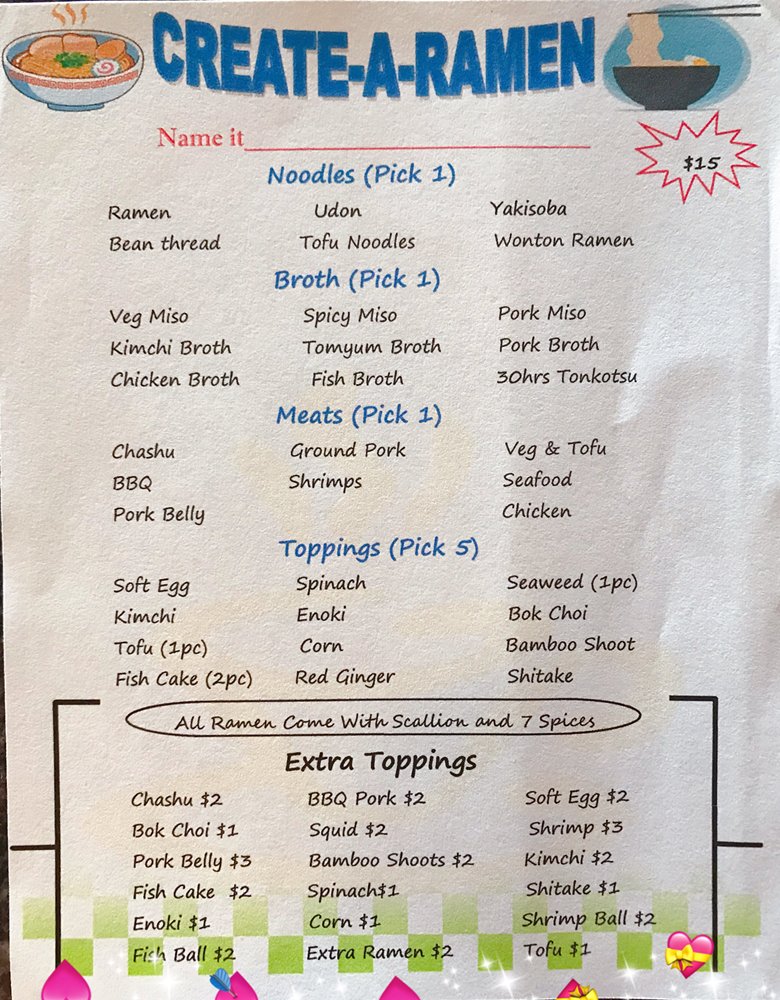 CREATE-A-RAMEN
Name it
$15
Noodles (Pick 1)
Ramen Udon Yakisoba
Bean thread Tofu Noodles Wonton Ramen
Broth (Pick 1)
Veg Miso Spicy Miso Pork Miso
Kimchi Broth Tomyum Broth Pork Broth
Chicken Broth Fish Broth 30hrs Tonkotsu
Meats (Pick 1)
Chashu Ground Pork Veg & Tofu
BBQ Shrimps Seafood
Pork Belly Chicken
Toppings (Pick 5)
Soft Egg Spinach Seaweed (1pc)
Kimchi Enoki Bok Choi
Tofu (1pc) Corn Bamboo Shoot
Fish Cake (2pc) Red Ginger Shitake
All Ramen Come With Scallion and 7 Spices
Extra Toppings
Chashu $2 BBQ Pork $2 Soft Egg $2
Bok Choi $1 Squid $2 Shrimp $3
Pork Belly $3 Bamboo Shoots $2 Kimchi $2
Fish Cake $2 Spinach$1 Shitake $1
Enoki $1 Corn $1 Shrimp Ball $2
Fish Ball $2 Extra Ramen $2 Tofu $1